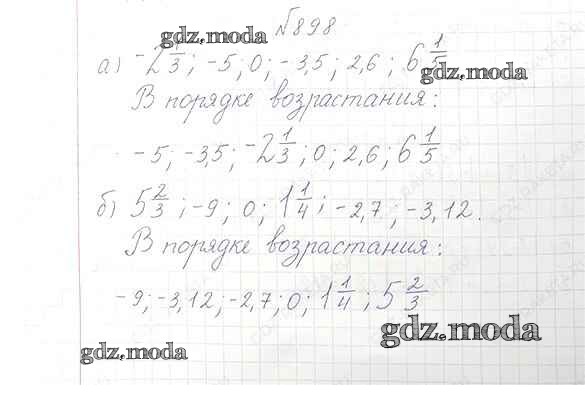 №898
gdz.moda
а) -2 1/3; -5; 0; -3,5; 2,6; 6 1/5
gdz.moda
В порядке возрастания:
-5; -3,5; -2 1/3; 0; 2,6; 6 1/5
gdz.moda
б) 5 2/3; -9; 0; 1 1/4; -2,7; -3,12.
В порядке возрастания:
-9; -3,12; -2,7; 0; 1 1/4; 5 2/3
gdz.moda
gdz.moda